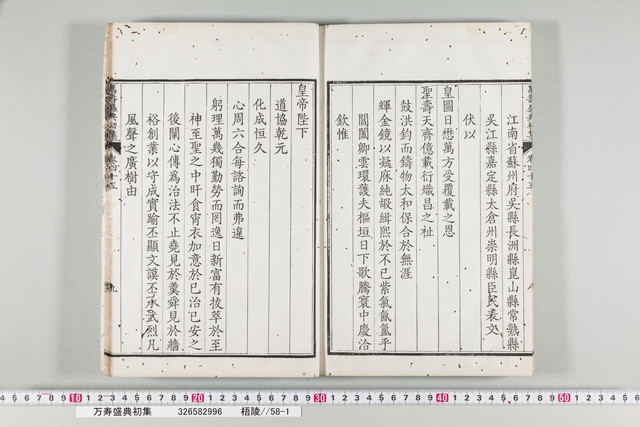 江南省蘇州府吳縣長洲縣崑山縣常熟縣
吳江縣嘉定縣太倉州崇明縣臣民表文
伏以
皇圖日懋萬方受覆載之恩
聖壽天齊億載衍熾昌之祉
鼓洪鈞而鑄物太和保合於無涯
輝金鏡以凝麻純嘏緝熙於不已紫氣氤氳乎
閶闔卿雲環護夫樞垣日下歌騰寰中慶洽
欽惟
皇帝陛下
道協乾元
化成恒久
心周六合每諮詢而弗遑
躬理萬幾獨勤勞而罔逸日新富有拔萃於至
神至聖之中旰食宵衣加意於已治已安之
後闡心傳為治法不止堯見於羹舜見於牆
裕創業以守成實踰丕顯文謨丕承武烈凡
風聲之廣樹由
萬壽盛典初集 卷四十五 九
万寿盛典初集 326582996 梧陵//58-1
10 20 30 40 50